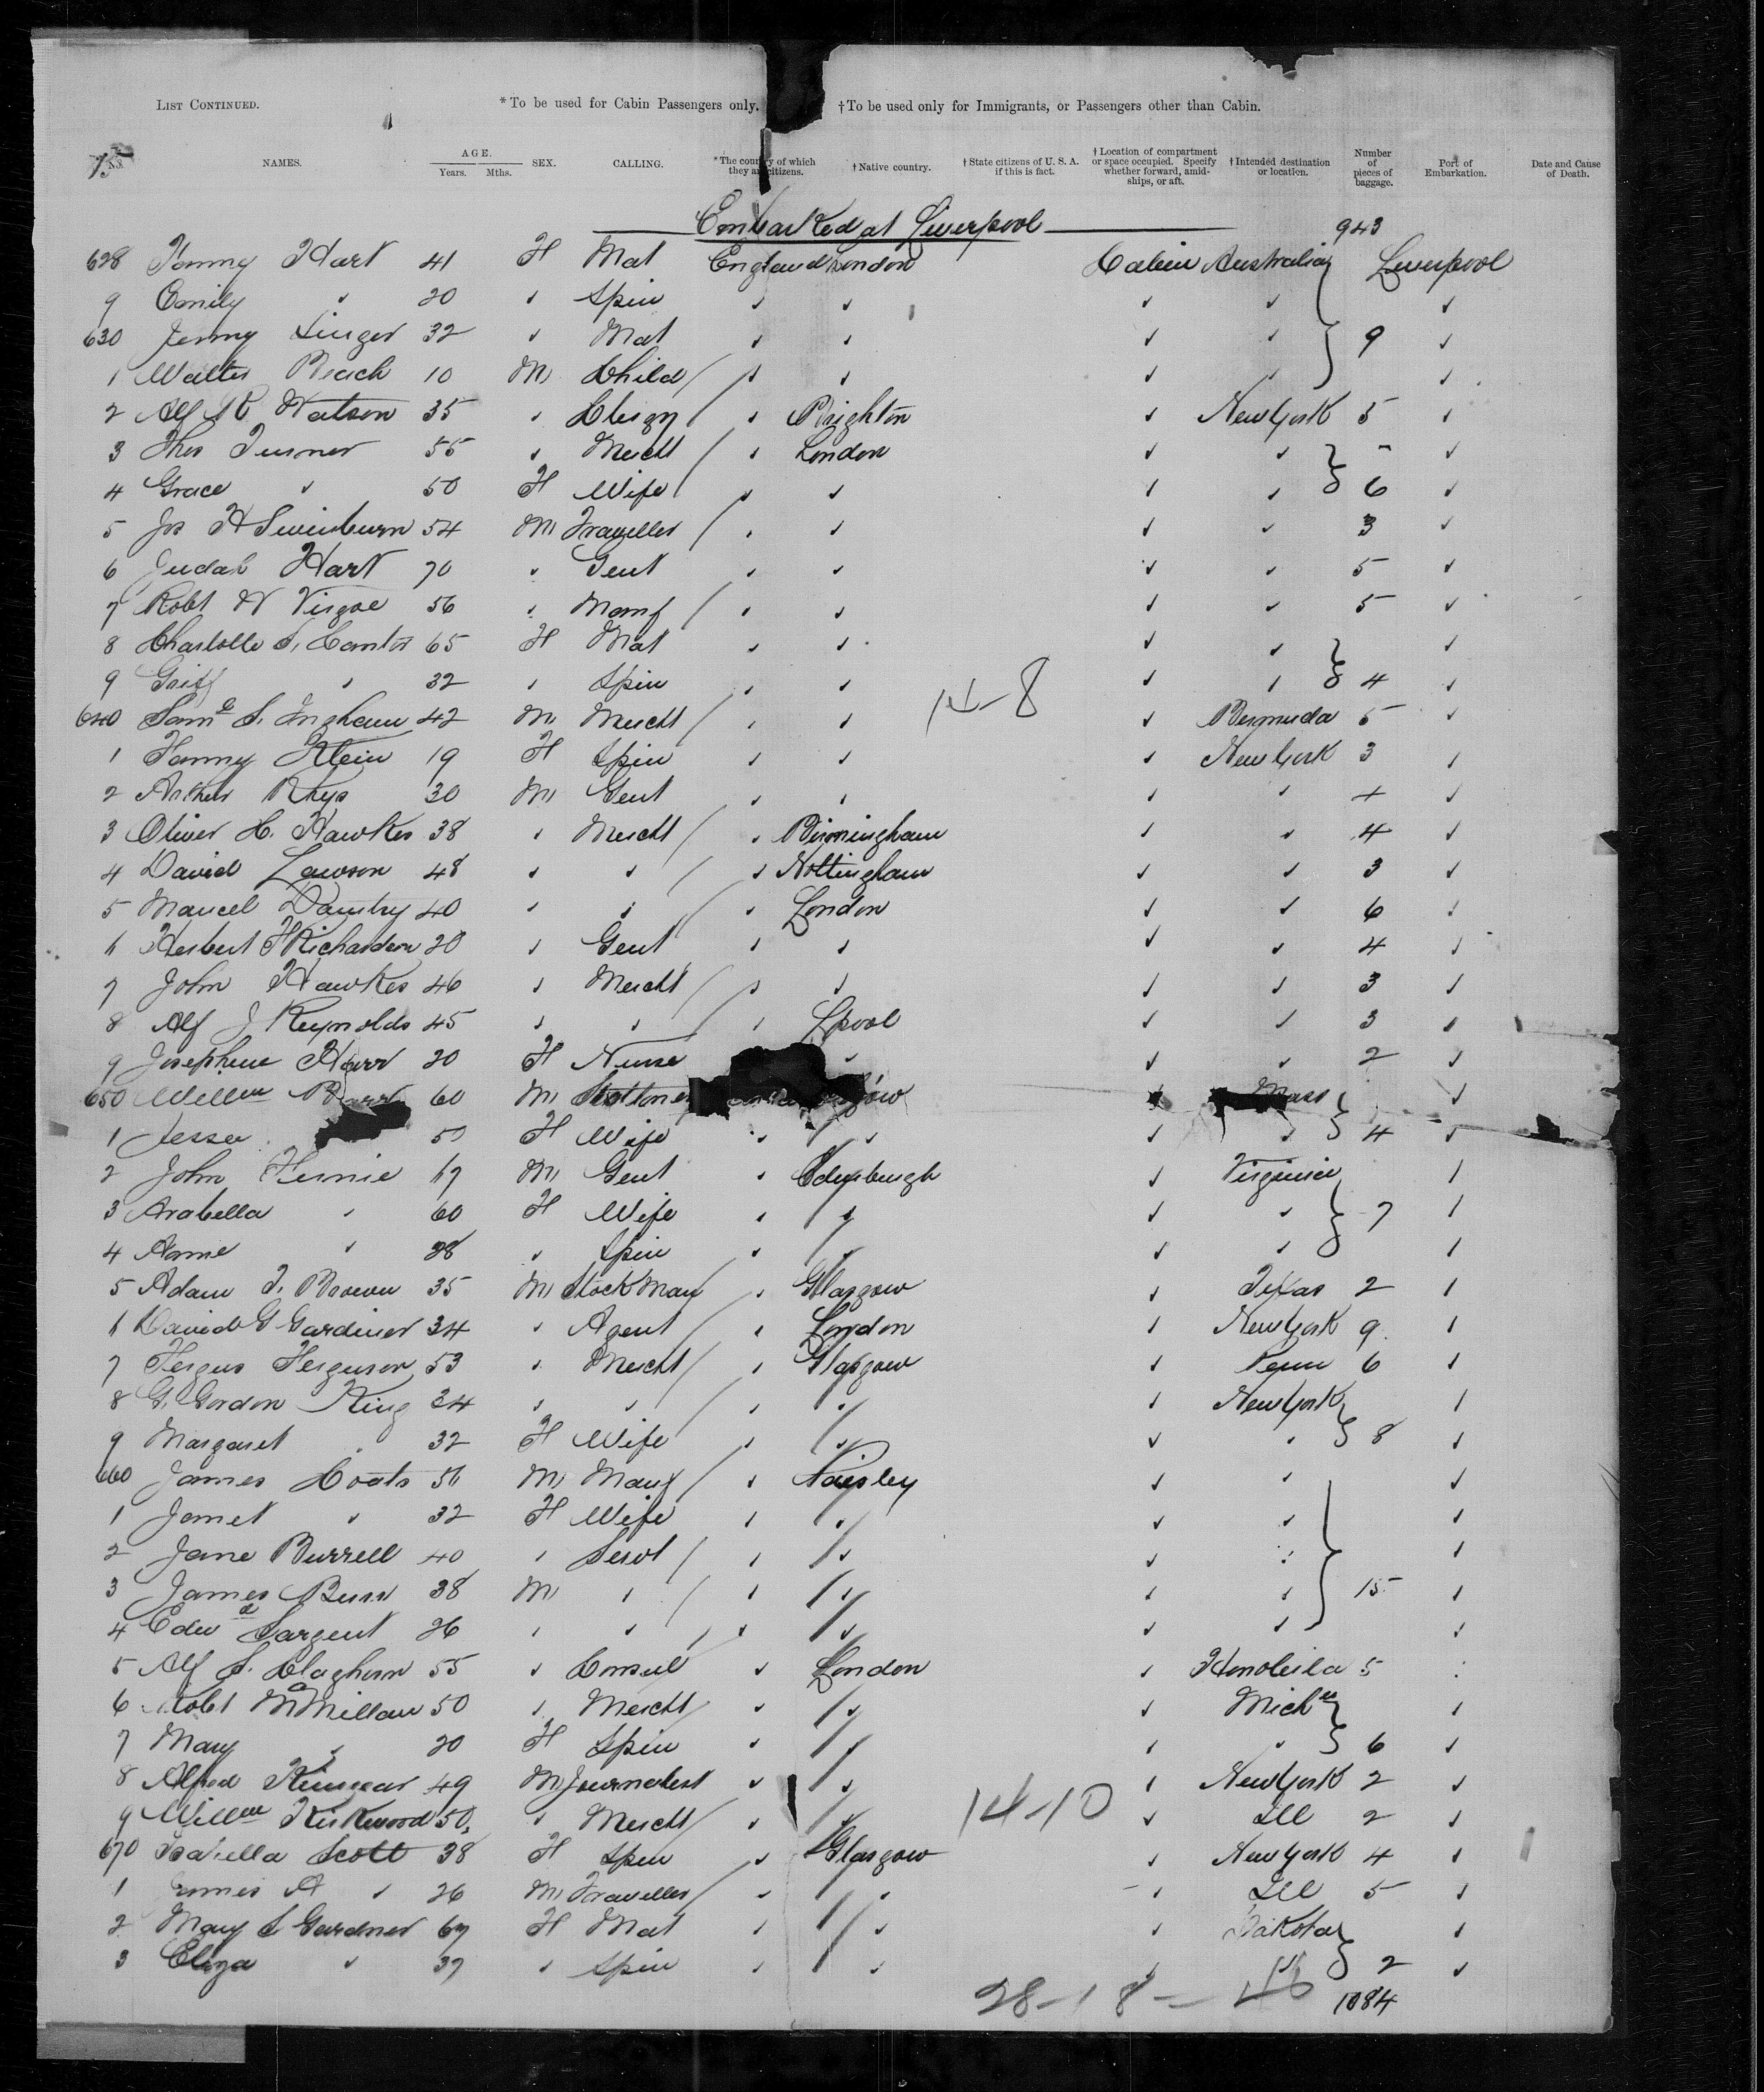 LIST CONTINUED. * To be used for Cabin Passengers only. † To be used only for Immigrants, or Passengers other than Cabin.
15 NAMES. AGE. Years. Mths. SEX. CALLING. * The country of which they are citizens. † Native country. † State citizens of U. S. A. if this is fact. † Location of compartment or space occupied. Specify whether forward, amid-ships, or aft. † Intended destination or location. Number of pieces of baggage. Port of Embarkation. Date and Cause of Death.
Embarked at Liverpool 943
628 Fanny Hart 41 F Mat England London Cabin Australia Liverpool
9 Emily " 20 " Spin " " " " "
630 Jenny Singer 32 " Mat " " " " 9 "
1 Walter Beach 10 M Child / " " " " "
2 Alf R Watson 35 " Clergy / " Brighton " New York 5 "
3 Thos Turner 55 " Mercht / " London " " - "
4 Grace " 50 F Wife / " " " " 6 "
5 Jos H Swinburn 54 M Traveller / " " " " 3 "
6 Judah Hart 70 " Gent " " " " 5 "
7 Robt W Virgoe 56 " Manf / " " " " 5 "
8 Charlotte S. Cantor 65 F Mat " " " " "
9 " 32 " Spin " " " " 4 "
640 Saml S. Ingham 42 M Mercht / " " 14-8 " Bermuda 5 "
1 Fanny Klein 19 F Spin " " " New York 3 "
2 Arthur Rhys 30 M Gent " " " " + "
3 Oliver C. Hawkes 38 " Mercht / " Birmingham " " 4 "
4 David Lawson 48 " " / " Nottingham " " 3 "
5 Marcel 40 " " / " London " " 6 "
6 Herbert F Richardson 20 " Gent " " " " 4 "
7 John Hawkes 46 " Mercht / " " " " 3 "
8 Alf J Reynolds 45 " " / " Lpool " " 3 "
9 Josephine 20 F Nurse " " " 2 "
650 Willm 60 M " Mass "
1 Jessie F Wife " " " " 4 "
2 John 67 M Gent " Edinburgh " Virginia "
3 Arabella " 60 F Wife " " " " 7 "
4 Annie " 28 " Spin " " " " "
5 Adam T. Brown 35 M Stockman / " Glasgow " Texas 2 "
6 David G Gardiner 34 " Agent / " London " New York 9 "
7 Fergus Ferguson 53 " Mercht / " Glasgow " Penn 6 "
8 G. Gordon King 34 " " / " " " New York "
9 Margaret " 32 F Wife " " " " 8 "
660 James Coats 51 M Manf / " Paisley " " "
1 Janet " 32 F Wife " " " " "
2 Jane Burrell 40 " Servt / " " " " "
3 James 38 M " / " " " " 15 "
4 Edwd Sargent 26 " " / " " " " "
5 Alf S. Cleghorn 55 " Consul " London " Honolulu 5 "
6 Robt McMillan 50 " Mercht / " " " Michn "
7 Mary " 20 F Spin " " " " 6 "
8 Alfred Kinnear 49 M Journalist " " " New York 2 "
9 Willm Kirkwood 50 " Mercht / " " 14-10 " Ill 2 "
670 Isabella Scott 38 F Spin " Glasgow " New York 4 "
1 James A " 26 M Traveller / " " " Ill 5 "
2 Mary S Gardner 67 F Mat " " " Dakota "
3 Eliza " 37 " Spin " " " " 2 "
28-18-46 1084